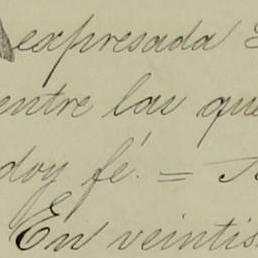 expresada
entre las que
doy fé. =
En veintis